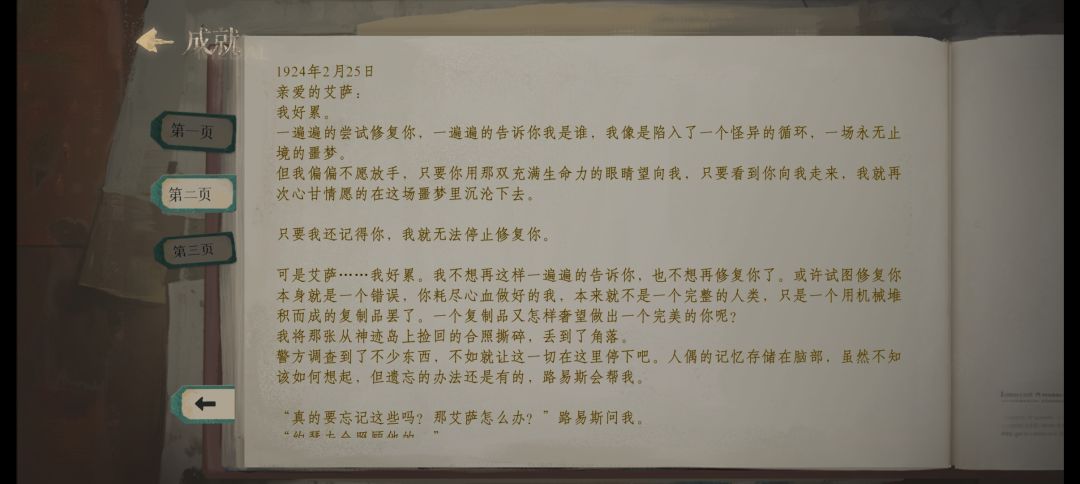 成就
第一页
第二页
第三页
1924年2月25日
亲爱的艾萨：
我好累。
一遍遍的尝试修复你，一遍遍的告诉你我是谁，我像是陷入了一个怪异的循环，一场永无止
境的噩梦。
但我偏偏不愿放手，只要你用那双充满生命力的眼睛望向我，只要看到你向我走来，我就再
次心甘情愿的在这场噩梦里沉沦下去。
只要我还记得你，我就无法停止修复你。
可是艾萨……我好累。我不想再这样一遍遍的告诉你，也不想再修复你了。或许试图修复你
本身就是一个错误，你耗尽心血做好的我，本来就不是一个完整的人类，只是一个用机械堆
积而成的复制品罢了。一个复制品又怎样奢望做出一个完美的你呢？
我将那张从神迹岛上捡回的合照撕碎，丢到了角落。
警方调查到了不少东西，不如就让这一切在这里停下吧。人偶的记忆存储在脑部，虽然不知
该如何想起，但遗忘的办法还是有的，路易斯会帮我。
“真的要忘记这些吗？那艾萨怎么办？”路易斯问我。